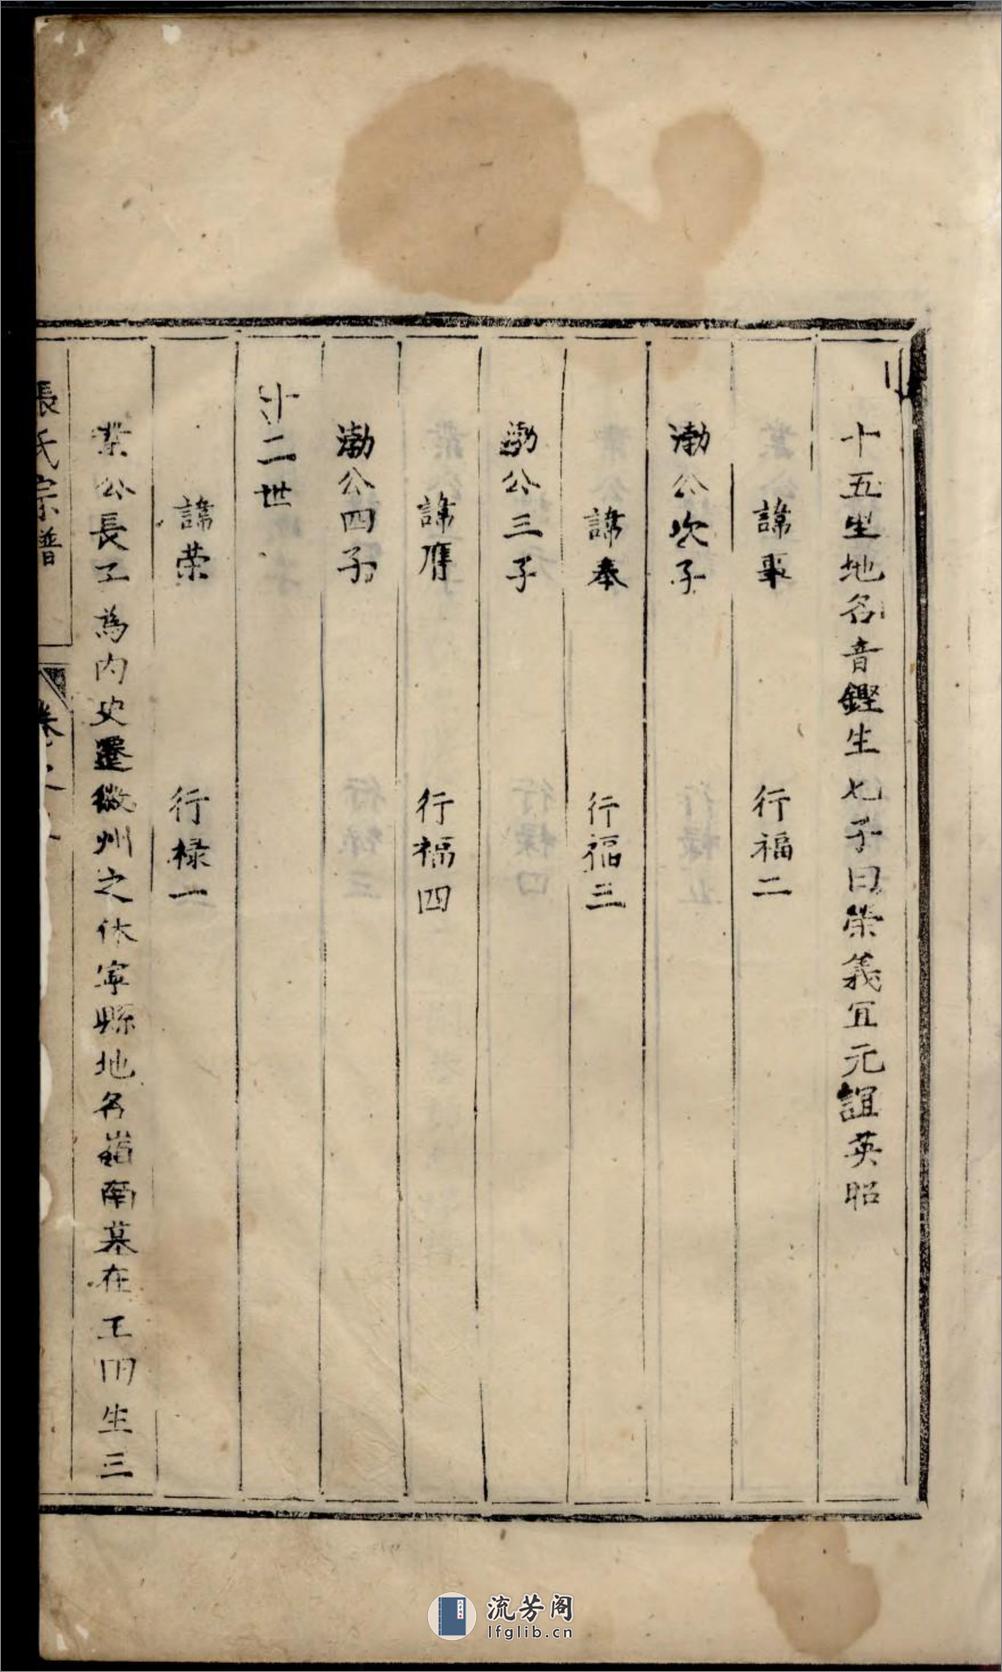 十五里地名音鏗生七子曰榮義宜元誼英昭
諱 行福二
渤公次子
諱奉 行福三
渤公三子
諱 行福四
渤公四子
廿二世
諱榮 行祿一
業公長子為內史遷徽州之休寧縣地名嶺南墓在工田生三
張氏宗譜 卷之
流芳阁
lfglib.cn